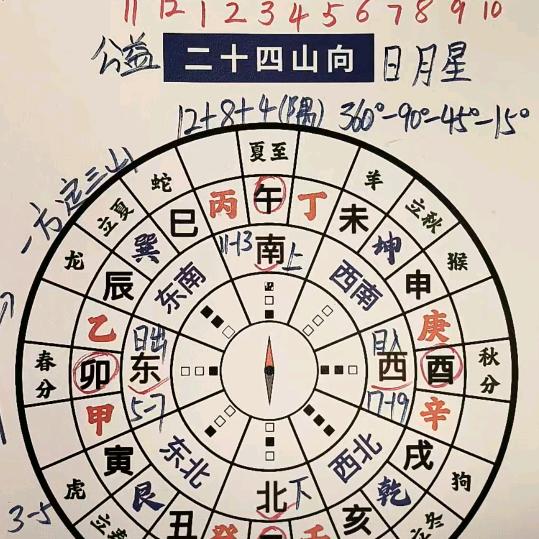 11 12 1 2 3 4 5 6 7 8 9 10
公益 二十四山向 日月星
12+8+4(隅) 360°-90°-45°-15°
一方定三山
夏至
蛇 羊
立夏 立秋
丙 午 丁
巳 未
龙 巽 11-13 南 上 坤 猴
辰 东南 西南 申
乙 庚
日出 日入
春分 卯 东 西 酉 秋分
甲 5-7 17-19 辛
寅 东北 西北 戌
虎 艮 北 下 乾 狗
3-5 丑 亥
癸 壬